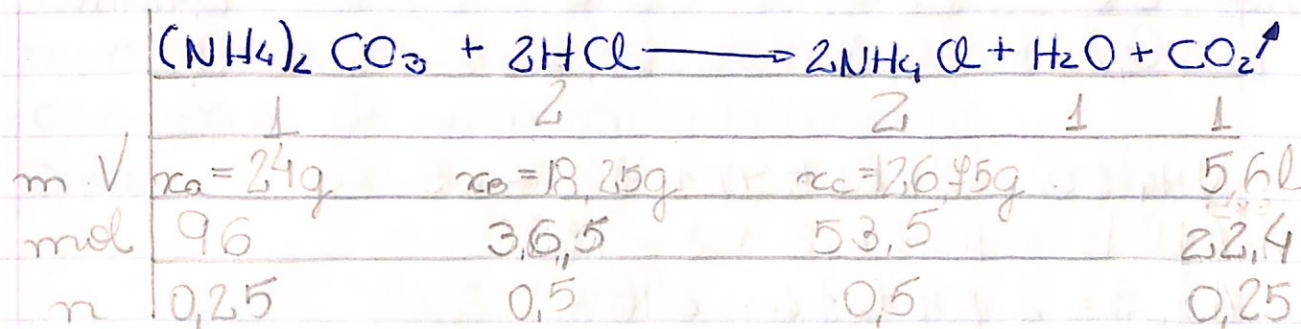 (NH₄)₂ CO₃ + 2HCl ⟶ 2NH₄Cl + H₂O + CO₂↗
1 2 2 1 1
m V xₐ = 24g x_B = 18,25g x_c = 26,75g 5,6l
mol 96 36,5 53,5 22,4
n 0,25 0,5 0,5 0,25